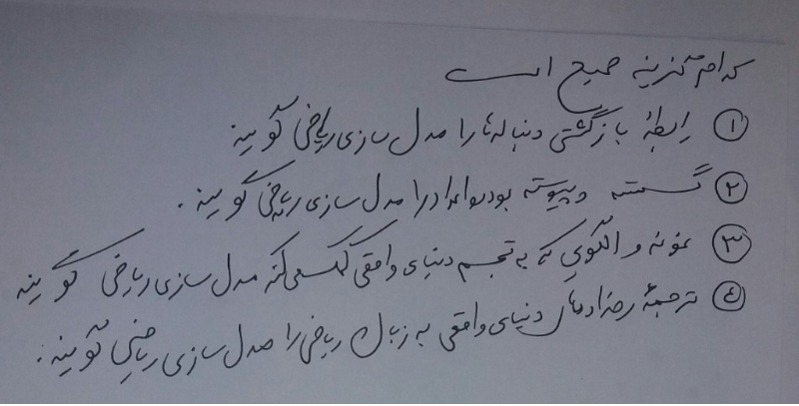 کدام گزینه صحیح است
① رابطهٔ بازگشتی دنباله‌ها را مدل سازی ریاضی گویند
② گسسته و پیوسته بودن اعداد را مدل سازی ریاضی گویند.
③ نمونه و الگویی که به تجسم دنیای واقعی کمک می کند مدل سازی ریاضی گویند
④ ترجمهٔ رخدادهای دنیای واقعی به زبان ریاضی را مدل سازی ریاضی گویند.